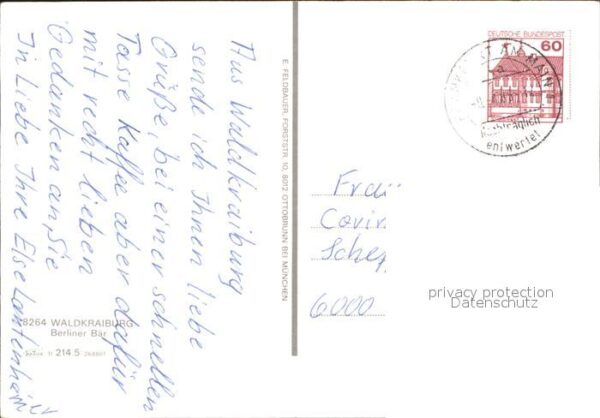 Aus Waldkraiburg
sende ich Ihnen liebe
Grüße, bei einer schnellen
Tasse Kaffee aber dafür
mit recht lieben
Gedanken an Sie
In Liebe Ihre Else
8264 WALDKRAIBURG
Berliner Bär
214.5
E. FELDBAUER, FORSTSTR. 10, 8012 OTTOBRUNN BEI MÜNCHEN
DEUTSCHE BUNDESPOST
60
Nachträglich
entwertet
Frau
Corin
Schep
6000
privacy protection
Datenschutz